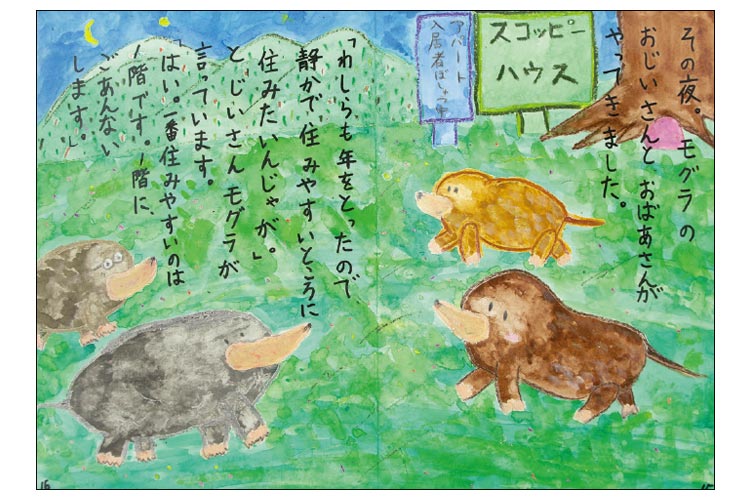 その夜。モグラの
おじいさんと おばあさんが
やってきました。
スコッピー
ハウス
アパート
入居者ぼしゅう中
「わしらも年をとったので、
静かで、住みやすいところに
住みたいんじゃが。」
と、じいさんモグラが
言っています。
「はい。一番住みやすいのは
1階です。1階に、
ごあんない
します。」
16
15